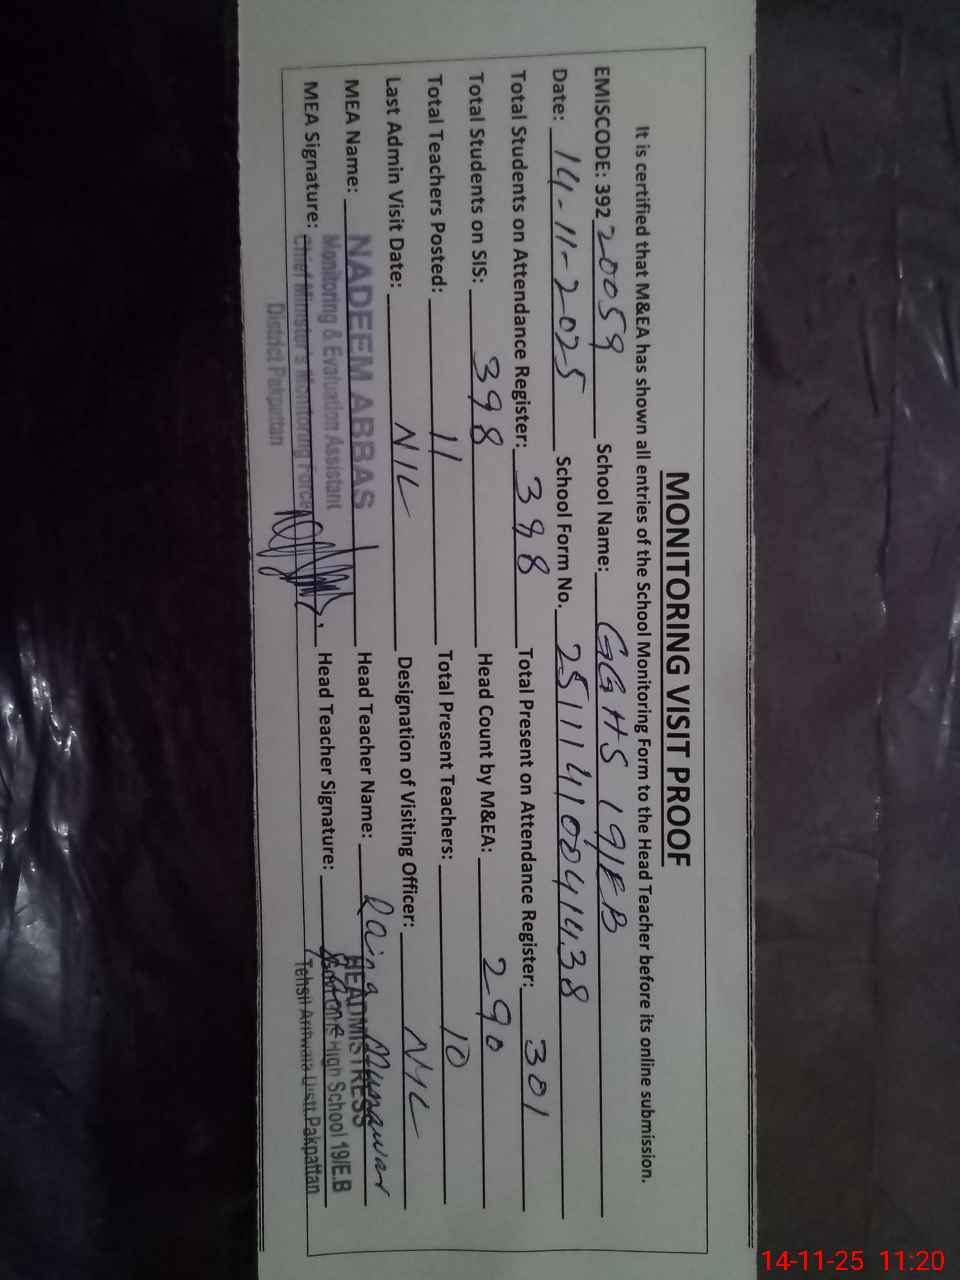 MONITORING VISIT PROOF
It is certified that M&EA has shown all entries of the School Monitoring Form to the Head Teacher before its online submission.
EMISCODE: 392 20059 School Name: GGHS 19/EB
Date: 14-11-2025 School Form No. 25111410041438
Total Students on Attendance Register: 398 Total Present on Attendance Register: 301
Total Students on SIS: 398 Head Count by M&EA: 290
Total Teachers Posted: 11 Total Present Teachers: 10
Last Admin Visit Date: NIL Designation of Visiting Officer: NIL
MEA Name: NADEEM ABBAS Head Teacher Name: Munawar
Monitoring & Evaluation Assistant
HEADMISTRESS
MEA Signature: Chief Minister's Monitoring Force Head Teacher Signature:
High School 19/E.B
District Pakpattan
Tehsil Arifwala Distt. Pakpattan
14-11-25 11:20